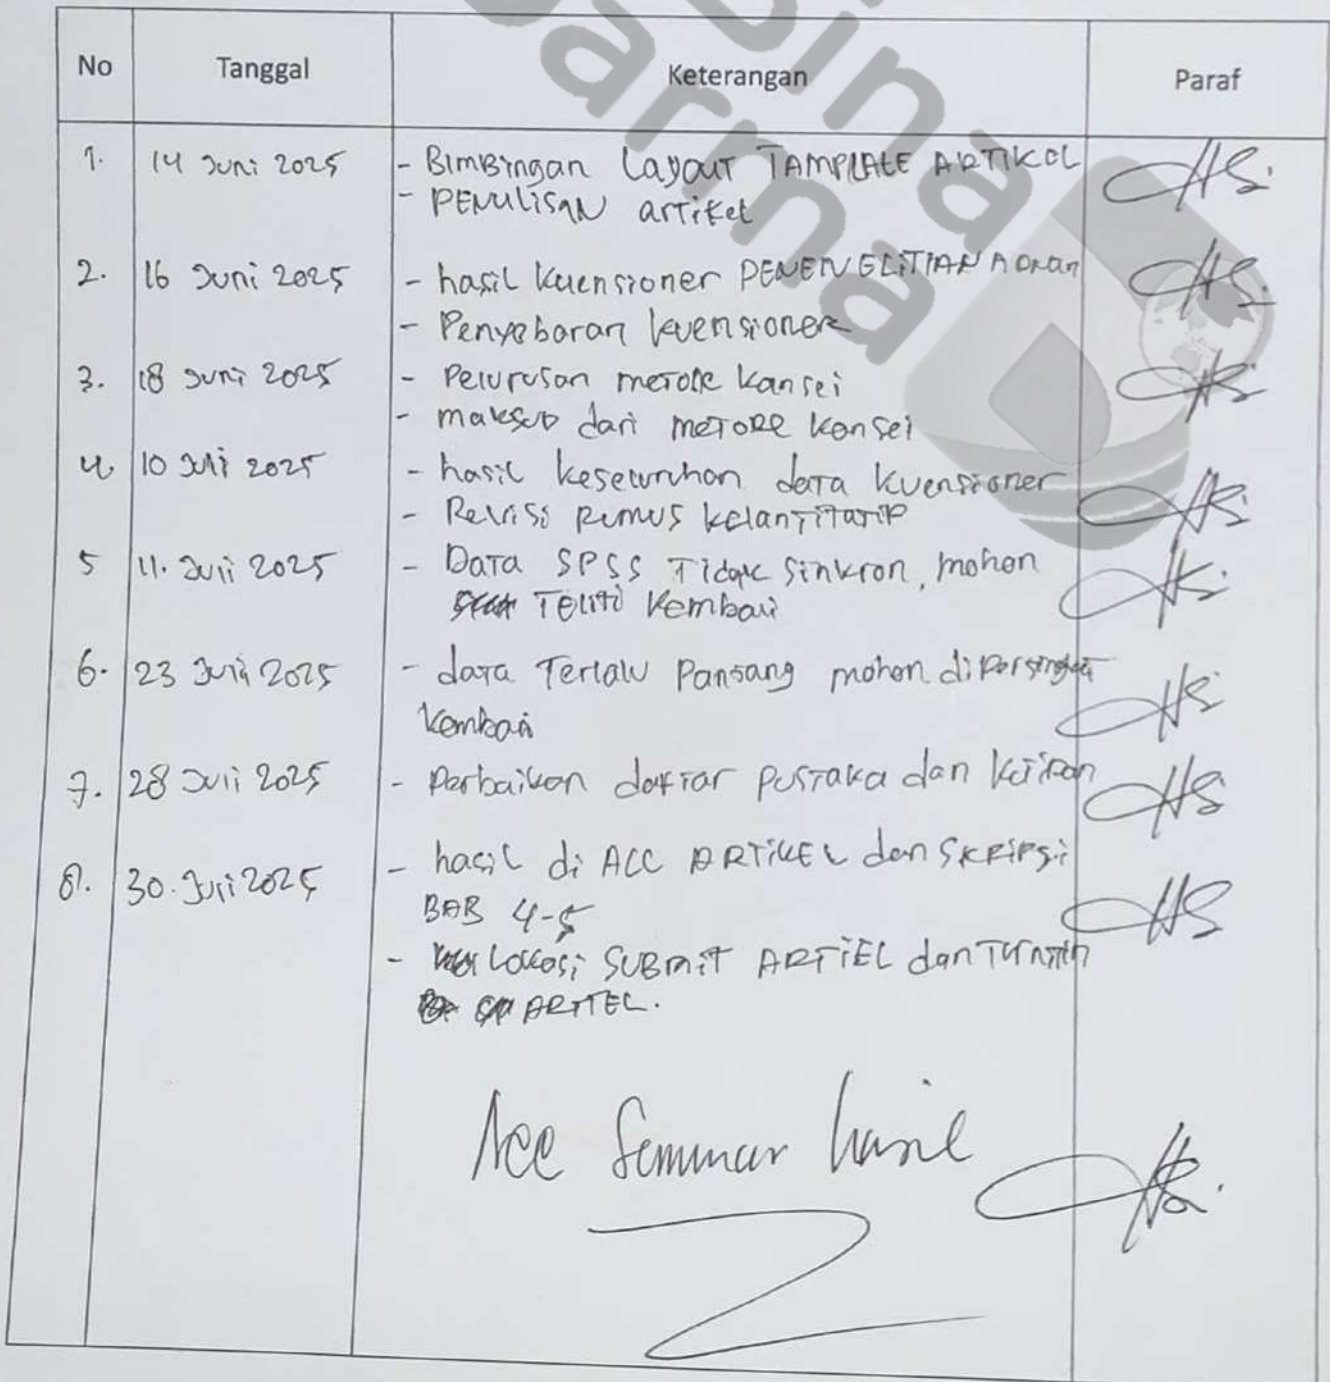 Bina
Darma
No Tanggal Keterangan Paraf
1. 14 Juni 2025 - BIMBingan Layout TAMPLATE ARTIKEL
- PENULISAN artikel
2. 16 Juni 2025 - hasil kuensioner
- Penyebaran kuensioner
3. 18 Juni 2025 - Pelurusan metode kansei
- maksud dari metode kansei
4. 10 Juli 2025 - hasil keseluruhan data kuensioner
- Revisi Rumus
5 11. Juli 2025 - Data SPSS Tidak sinkron, mohon
Teliti kembali
6. 23 Juli 2025 - data Terlalu Panjang mohon dipersingkat
kembali
7. 28 Juli 2025 - Perbaikan daftar pustaka dan
8. 30. Juli 2025 - hasil di ACC ARTIKEL dan SKRIPSi
BAB 4-5
- Lokasi SUBMIT ARTIEL dan
ARITEL.
Acc Seminar hasil